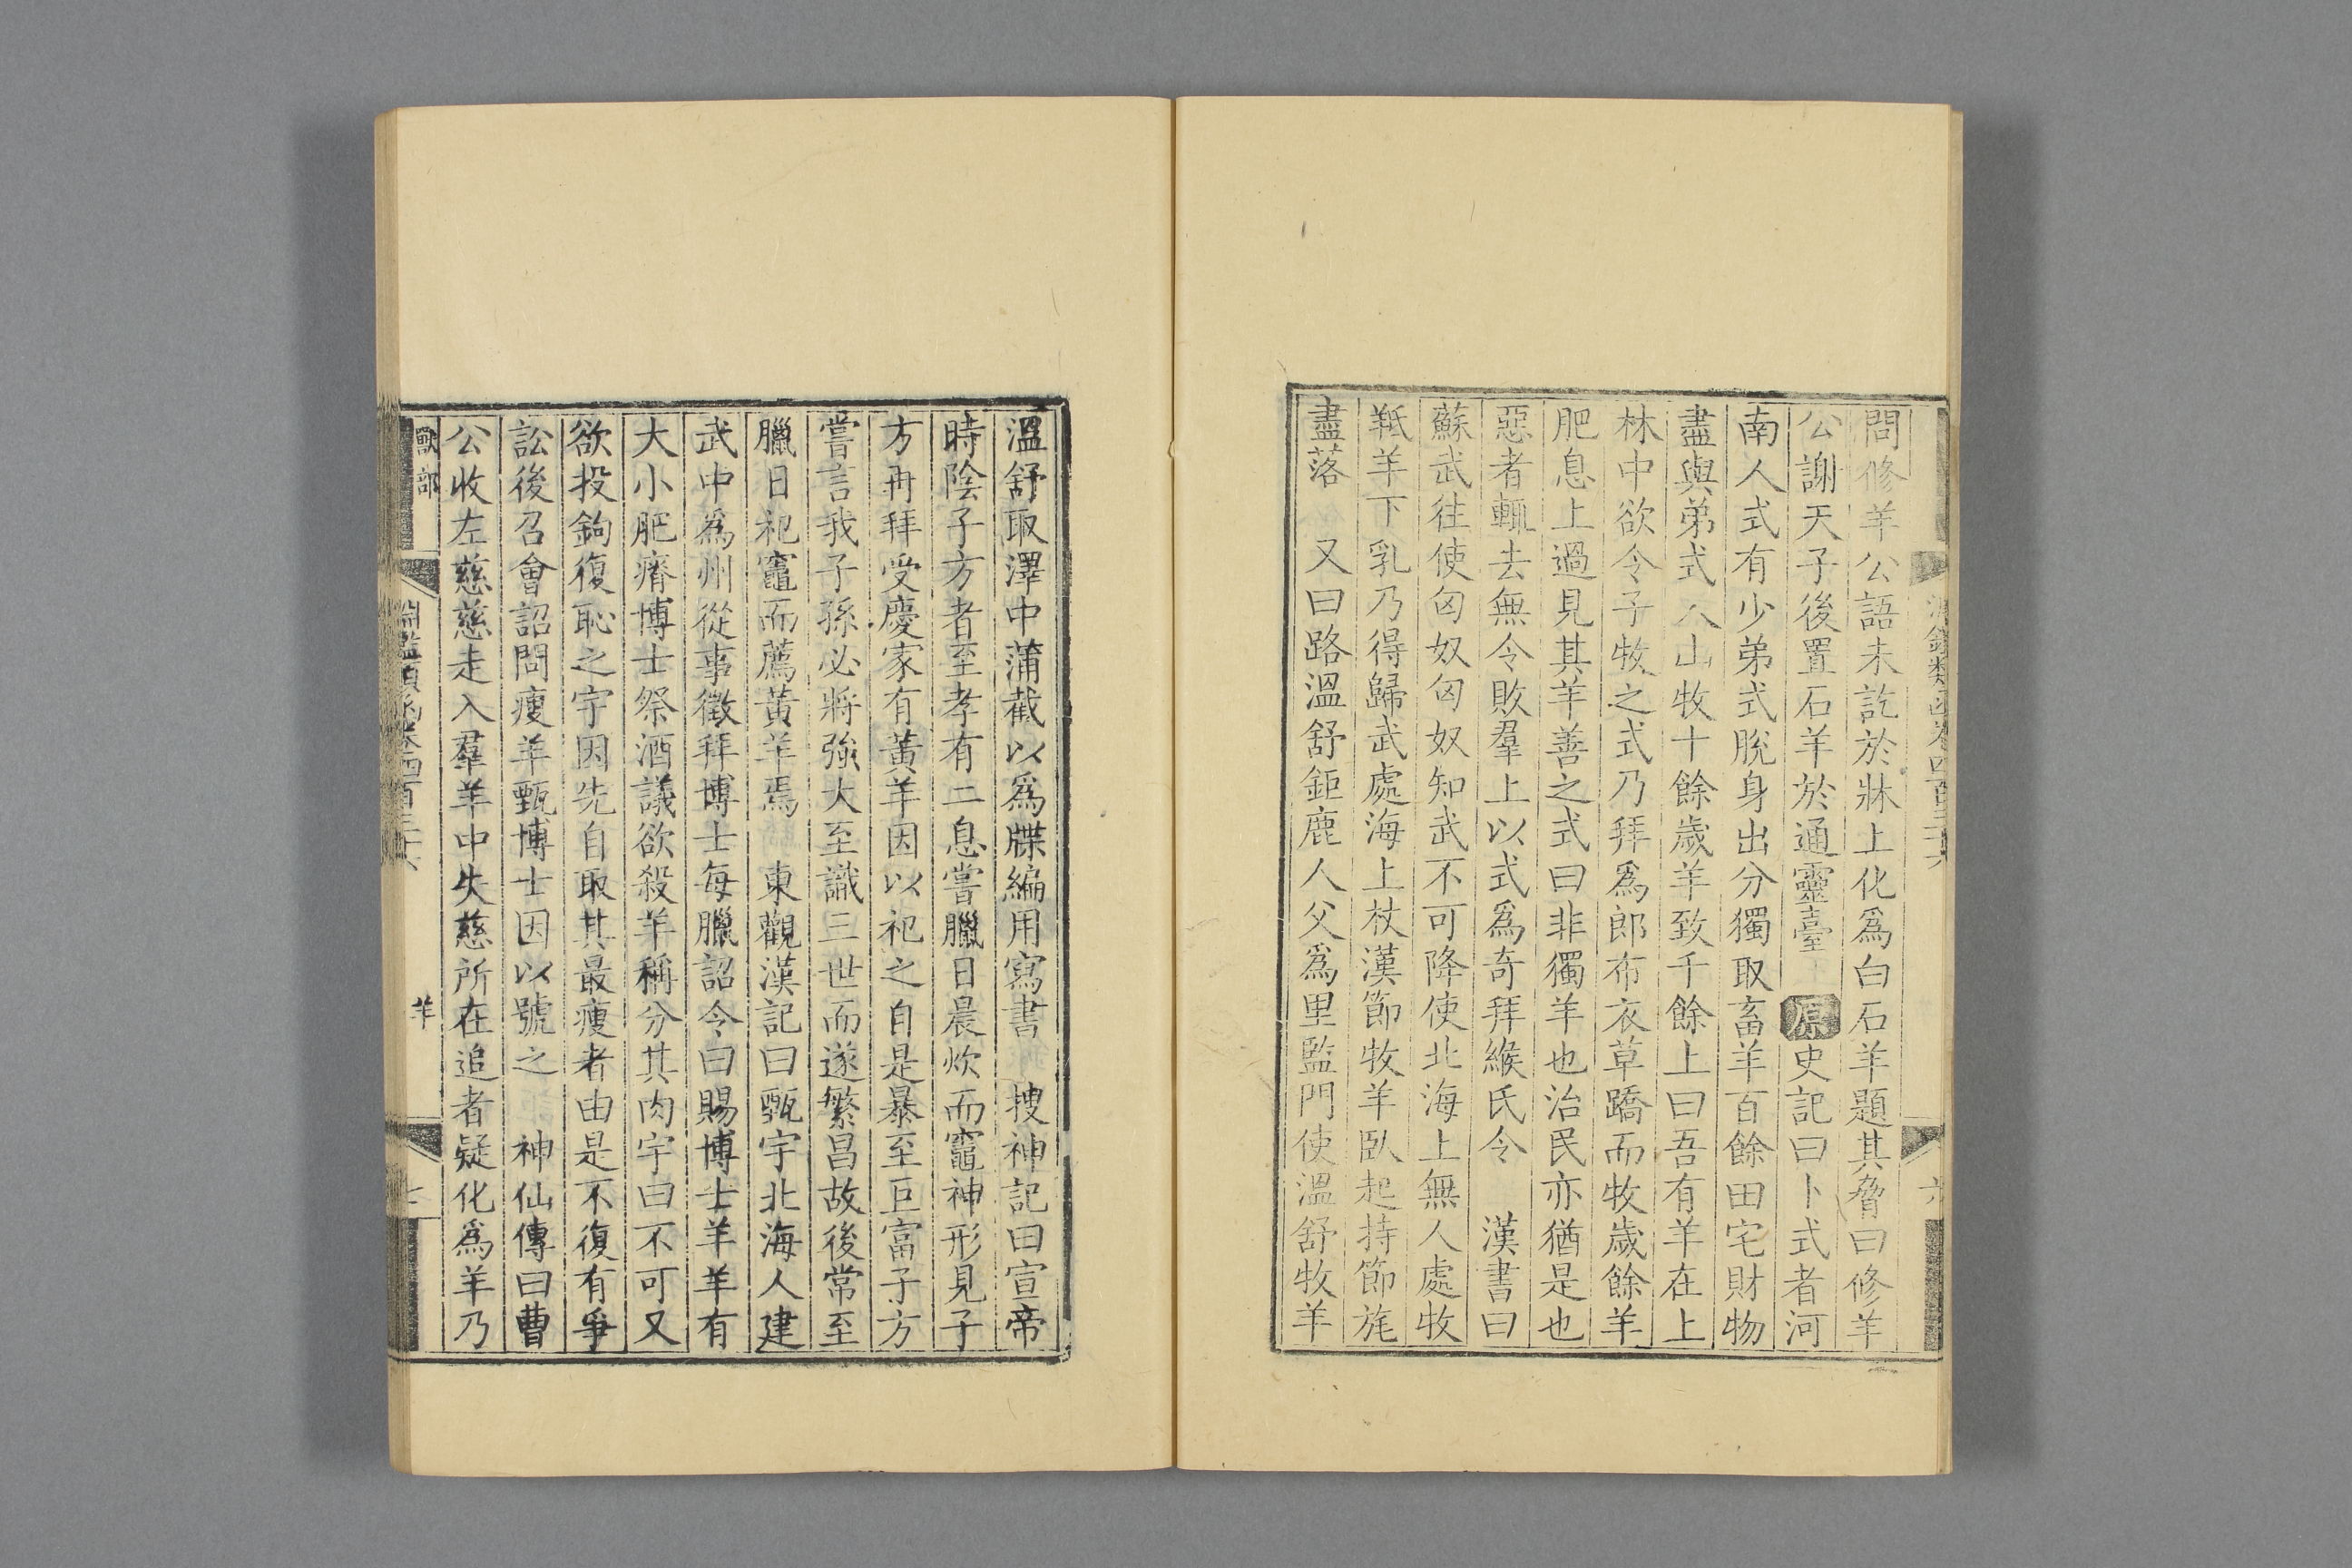 問修羊公語未訖於牀上化爲白石羊題其脅曰修羊
公謝天子後置石羊於通靈臺 原史記曰卜式者河
南人式有少弟式脫身出分獨取畜羊百餘田宅財物
盡與弟式入山牧十餘歲羊致千餘上曰吾有羊在上
林中欲令子牧之式乃拜爲郎布衣草蹻而牧歲餘羊
肥息上過見其羊善之式曰非獨羊也治民亦猶是也
惡者輒去無令敗羣上以式爲奇拜緱氏令 漢書曰
蘇武往使匈奴匈奴知武不可降使北海上無人處牧
羝羊下乳乃得歸武處海上杖漢節牧羊臥起持節旄
盡落 又曰路溫舒鉅鹿人父爲里監門使溫舒牧羊
溫舒取澤中蒲截以爲牒編用寫書 搜神記曰宣帝
時陰子方者至孝有二息嘗臘日晨炊而竈神形見子
方再拜受慶家有黃羊因以祀之自是暴至巨富子方
嘗言我子孫必將強大至識三世而遂繁昌故後常至
臘日祀竈而薦黃羊焉 東觀漢記曰甄宇北海人建
武中爲州從事徵拜博士每臘詔令曰賜博士羊羊有
大小肥瘠博士祭酒議欲殺羊稱分其肉宇曰不可又
欲投鉤復恥之宇因先自取其最瘦者由是不復有爭
訟後召會詔問瘦羊甄博士因以號之 神仙傳曰曹
公收左慈慈走入羣羊中失慈所在追者疑化爲羊乃
獸部
淵鑑類函卷四百三十六
羊
七